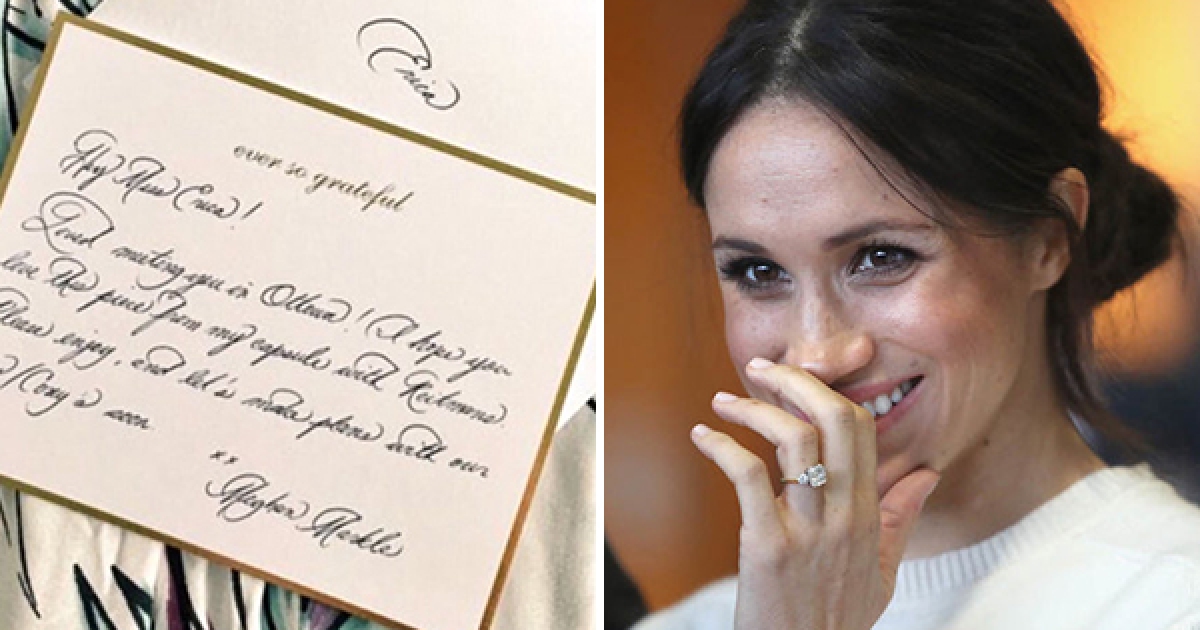 Erica
ever so grateful
Hey Miss Erica!
Loved meeting you in Ottawa! I hope you
love this piece from my capsule with Reitmans.
Please enjoy, and let's make plans with our
Cory's soon
xx
Meghan Markle